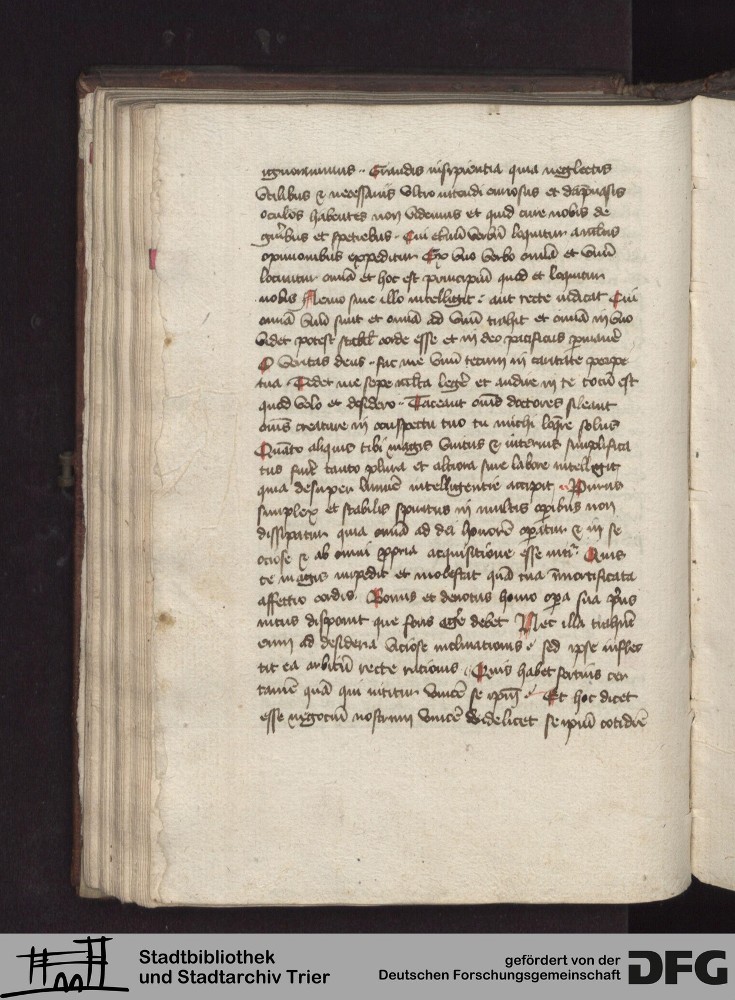 ignoramus · Grandis insipientia quia neglectis
utilibus et necessariis ultro intendi curiosis et dāpnosis
oculos habentes non videmus et quid cure nobis de
genībus et speciebus · Cui etnū verbū loquitur a mltis
opinionibus expeditur Ex uno verbo omnia et unū
locuntur omīa et hoc est principiū quod et loquitur
nobis Nemo sine illo intelligit · aut recte iudicat Cui
omīa unū sunt et omīa ad unū trahit et omīa in uno
videt potest stabil corde esse et in deo pacificus pmanē
O veritas deus · fac me unū tecum in caritate perpe
tua · Tedet me sepe mlta legē et audire in te totū est
quod volo et desidero · Taceant omēs doctores sileant
omīs creature in conspectu tuo tu michi loqre solus
Quāto aliquis tibi magis unitus et internis simplifica
tus fuit tanto plura et altiora sine labore intelligit
quia desuper lumē intelligentie accipit · Purus
simplex et stabilis spiritus in multis opibus non
dissipatur quia omīa ad dei honorē opatur et in se
ociose et ab omni ppria acquisitione esse niti · Quis
te magis impedit et molestat quā tua īmortificata
affectio cordis · Bonus et devotus homo opa sua prius
intus disponit que foris agē debet Nec illa trahūt
eum ad desideria viciose inclinationis · sed ipse infles
tit ea arbitriū recte rationis · Quis habet fortius cer
tamē quā qui nititur vincē se ipm · Et hoc dicet
esse negociū nostrum vincē videlicet se ipm cotidie
Stadtbibliothek
und Stadtarchiv Trier
gefördert von der
Deutschen Forschungsgemeinschaft
DFG